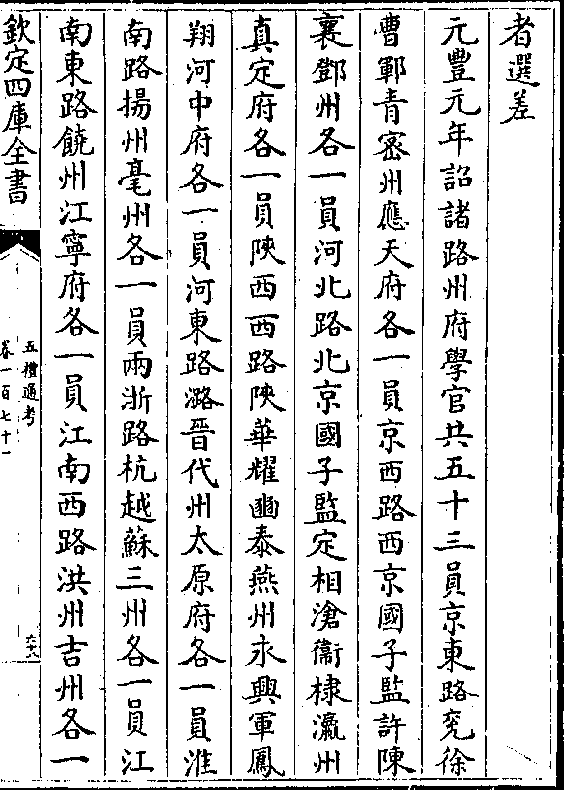 者選差
元豐元年詔諸路州府學官共五十三員京東路兖徐
曹鄆青密州應天府各一員京西路西京國子監許陳
襄鄧州各一員河北路北京國子監定相滄衞棣瀛州
真定府各一員陜西西路陜華耀豳泰燕州永興軍鳳
翔河中府各一員河東路潞晉代州太原府各一員淮
南路揚州亳州各一員兩浙路杭越蘇三州各一員江
南東路饒州江寧府各一員江南西路洪州吉州各一
欽定四庫全書
五禮通考
卷一百七十一